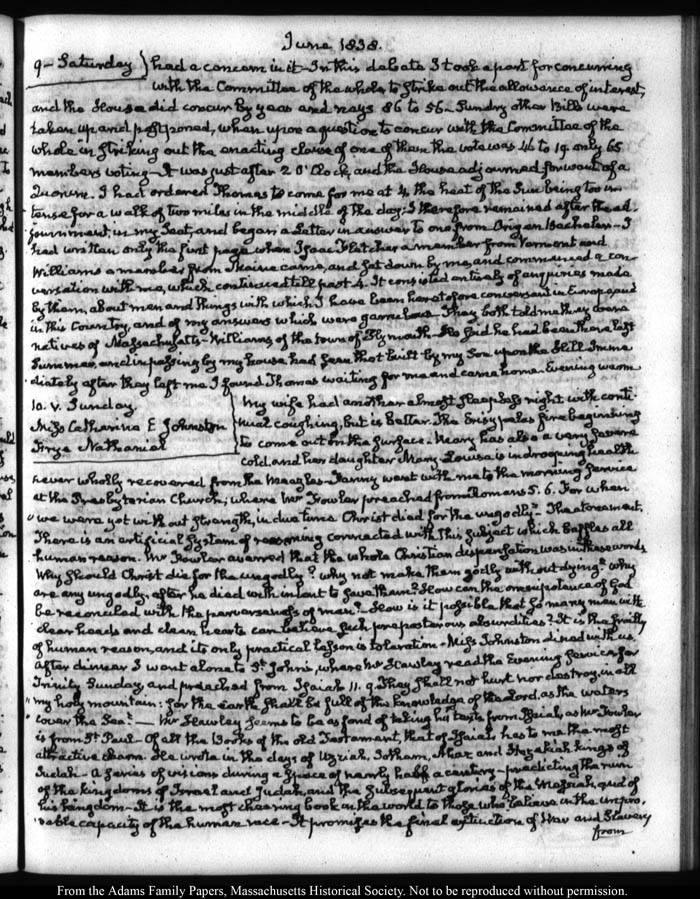 June 1838.
9 – Saturday } had a concern in it – In this debate I took a part for concurring
with the Committee of the whole to strike out the allowance of interest,
and the House did concur by yeas and nays 86 to 56 – Sundry other Bills were
taken up and postponed, when upon a question to concur with the Committee of the
whole in striking out the enacting clause of one of them the vote was 46 to 19 only 65
members voting – It was just after 2 O'Clock, and the House adjourned for want of a
Quorum. I had ordered Thomas to come for me at 4 the heat of the Sun being too in-
tense for a walk of two miles in the middle of the day; I therefore remained after the ad-
journment, in my Seat, and began a Letter in answer to one from Origen Bacheler – I
had written only the first page when Isaac Fletcher a member from Vermont and
Williams a member from Maine came, and sat down by me, and commenced a con-
versation with me, which continued till past 4. It consisted entirely of enquiries made
by them, about men and things with which I have been heretofore conversant in Europe, and
in this Country, and of my answers which were garrulous – They both told me they were
natives of Massachusetts – Williams of the town of Plymouth – He said he had been there last
Summer, and in passing by my house had seen that built by my Son upon the Hill. Imme-
diately after they left me I found Thomas waiting for me and came home. Evening warm
10. V. Sunday.
Miss Catharine E Johnston
Frye Nathaniel
My wife had another almost sleepless night with conti-
nual coughing, but is better. The Erisypelas fire beginning
to come out on the surface. Mary has also a very severe
cold, and her daughter Mary Louisa is in drooping health
never wholly recovered from the Measles – Fanny went with me to the morning service
at the Presbyterian Church; where Mr Fowler preached from Romans 5. 6. For when
"we were yet without strength, in due time Christ died for the ungodly". The atonement.
There is an artificial System of reasoning connected with this subject which baffles all
human reason. Mr Fowler averred that the whole Christian dispensation was in these words
Why should Christ die for the ungodly? why not make them godly without dying? why
are any ungodly, after he died with intent to save them? How can the omnipotence of God
be reconciled with the perverseness of man? How is it possible that so many men with
clear heads and clean hearts can believe such preposterous absurdities? It is the frailty
of human reason, and its only practical lesson is toleration – Miss Johnston dined with us.
After dinner I went alone to St. John's, where Mr Hawley read the Evening service for
Trinity Sunday and preached from Isaiah 11. 9. They shall not hurt nor destroy in all
"my holy mountain: for the earth shall be full of the knowledge of the Lord, as the waters
"cover the Sea". — Mr Hawley seems to be as fond of taking his texts from Isaiah, as Mr Fowler
is from St. Paul – Of all the Books of the old Testament, that of Isaiah, has to me the most
attractive charm. He wrote in the days of Uzziah, Jotham, Ahaz and Hezekiah kings of
Judah – A series of visions during a space of nearly half a century – predicting the ruin
of the kingdoms of Israel and Judah, and the subsequent glories of the Messiah, and of
his kingdom – It is the most cheering book in the world to those who believe in the impro-
vable capacity of the human race – It promises the final extinction of War and Slavery
from
From the Adams Family Papers, Massachusetts Historical Society. Not to be reproduced without permission.